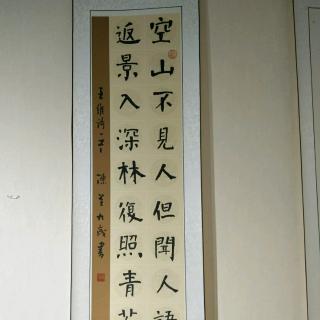 空山不見人但聞人語
返景入深林復照青苔
王維詩一首